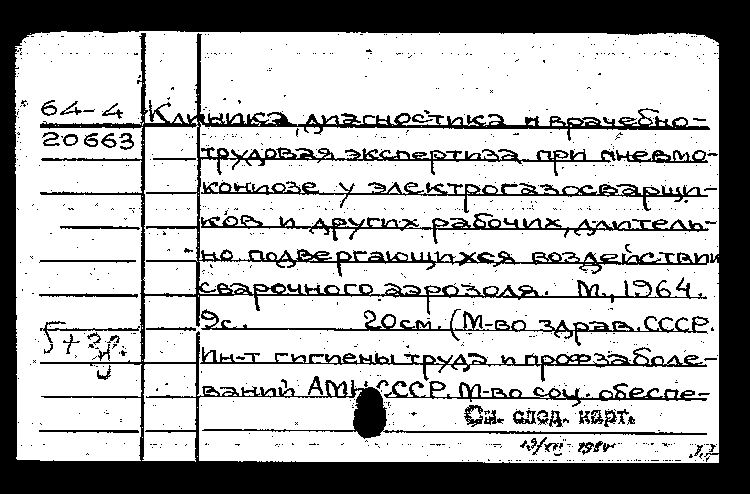 64-4 Клиника, диагностика и врачебно-
20663 трудовая экспертиза при пневмо-
кониозе у электрогазосварщи-
ков и других рабочих, длитель-
но подвергающихся воздействи
сварочного аэрозоля. М., 1964.
9с. 20см. (М-во здрав. СССР.
5+ Ин-т гигиены труда и профзаболе-
ваний АМН СССР. М-во соц. обеспе-
См. след. карт.